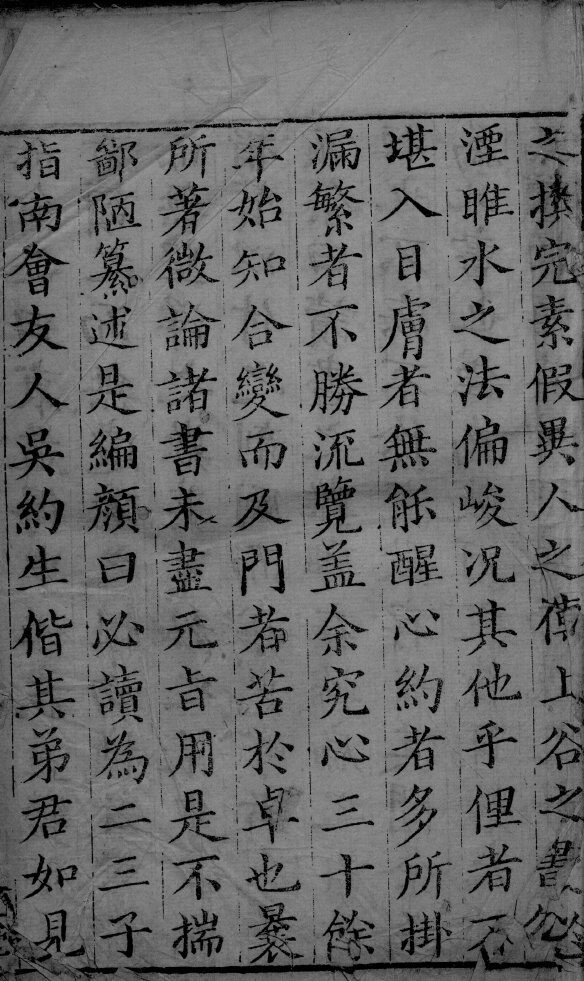 之完素假異人之術上谷之書久
湮睢水之法偏峻况其他乎俚者不
堪入目膚者無能醒心約者多所掛
漏繁者不勝流覽盖余究心三十餘
年始知合變而及門者苦於卓也曩
所著微論諸書未盡元旨用是不揣
鄙陋纂述是編顔曰必讀為二三子
指南會友人吳約生偕其弟君如見